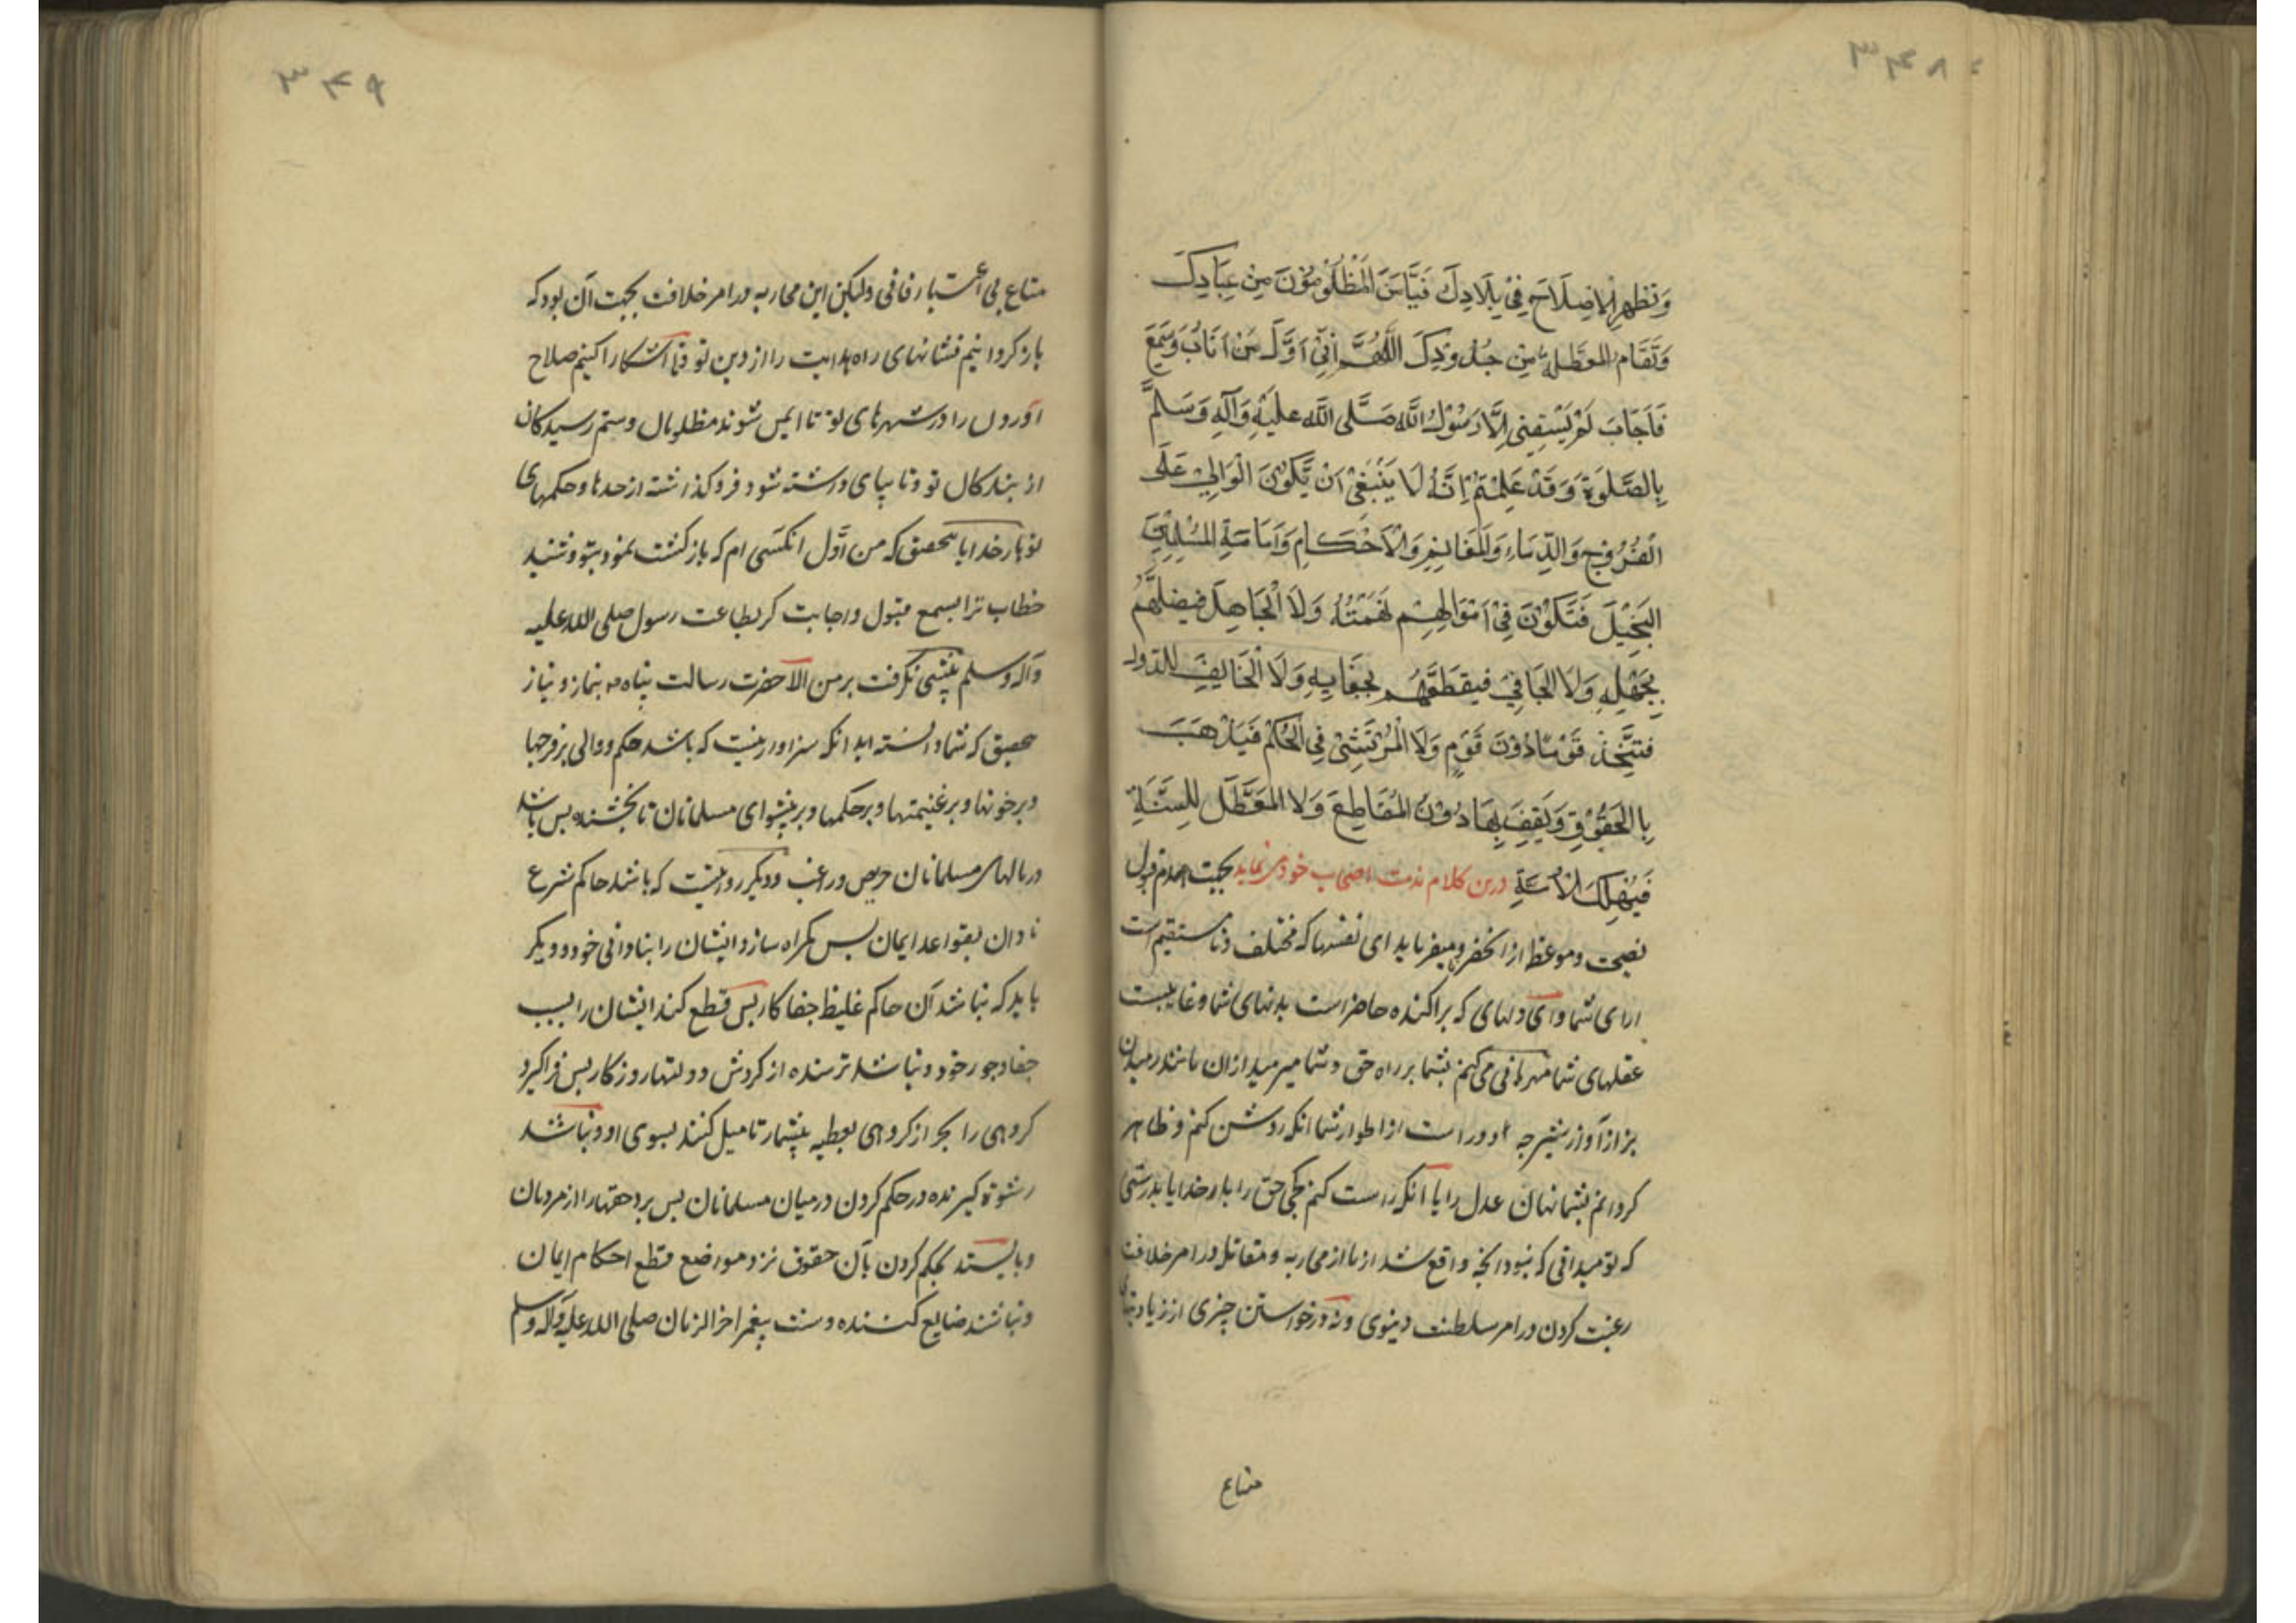 ۳۴۸
وَنُظْهِرَ الْاِصْلَاحَ فِيْ بِلَادِكَ فَيَأْمَنَ الْمَظْلُوْمُوْنَ مِنْ عِبَادِكَ
وَتُقَامَ الْمُعَطَّلَةُ مِنْ حُدُوْدِكَ اَللّٰهُمَّ اِنِّيْ اَوَّلُ مَنْ اَنَابَ وَسَمِعَ
فَاَجَابَ لَمْ يَسْبِقْنِي اِلَّا رَسُوْلُ اللّٰهِ صَلَّى اللّٰهُ عَلَيْهِ وَآلِهِ وَسَلَّمَ
بِالصَّلٰوةِ وَقَدْ عَلِمْتُمْ اِنَّهُ لَا يَنْبَغِيْ اَنْ يَّكُوْنَ الْوَالِيْ عَلَى
الْفُرُوْجِ وَالدِّمَاءِ وَالْمَغَانِمِ وَالْاَحْكَامِ وَاِمَامَةِ الْمُسْلِمِيْنَ
الْبَخِيْلَ فَتَكُوْنَ فِيْ اَمْوَالِهِمْ نَهْمَتُهُ وَلَا الْجَاهِلَ فَيُضِلَّهُمْ
بِجَهْلِهِ وَلَا الْجَافِيْ فَيَقْطَعَهُمْ بِجَفَائِهِ وَلَا الْخَائِفَ لِلدُّوَلِ
فَيَتَّخِذَ قَوْمًا دُوْنَ قَوْمٍ وَلَا الْمُرْتَشِيْ فِي الْحُكْمِ فَيَذْهَبَ
بِالْحُقُوْقِ وَيَقِفَ بِهَا دُوْنَ الْمَقَاطِعِ وَلَا الْمُعَطِّلَ لِلسُّنَّةِ
فَيُهْلِكَ الْاُمَّةِ درین کلام مذمت اصحاب خود می نماید بجهت عدم قبول
نصیحت و موعظه از آنحضرت و میفرماید ای نفسها که مختلف و نامستقیم است
ارای شما و ای دلهای که پراکنده حاضر است بدنهای شما و غایبست
عقلهای شما مهربانی می کنم بشما بر راه حق و شما میرمید ازان مانند رمیدن
بز از آواز شیر چه دور است از اطوار شما انکه روشن کنم و ظاهر
کردانم بشما نهان عدل را یا آنکه راست کنم کجی حق را بار خدایا بدرستی
که تو میدانی که نبود انچه واقع شد از ما از محاربه و مقاتله در امر خلافت
رغبت کردن در امر سلطنت دنیوی و نه درخواستن چیزی از زیادتیهای
متاع
۳۴۹
متاع بی اعتبار فانی ولیکن این محاربه در امر خلافت بجهت آن بود که
باز کردانیم نشانهای راه هدایت را از دین تو و تا آشکارا کنیم صلاح
آوردن را در شهرهای تو تا ایمن شوند مظلومان و ستم رسیدکان
از بندکان تو و تا بپای داشته شود فروکذاشته از حدها و حکمهای
تو بار خدایا بتحقیق که من اوّل انکسی ام که بازکشت نمود بتو و شنید
خطاب ترا بسمع قبول و اجابت کرد بطاعت رسول صلی الله علیه
و آله و سلم پیشی نکرفت بر من الا حضرت رسالت پناه بنماز و نیاز
بتحقیق که شما دانسته اید انکه سزاوار نیست که باشد حکم و والی بر فرجها
و بر خونها و بر غنیمتها و بر حکمها و بر پیشوای مسلمانان نابخشنده پس باشد
در مالهای مسلمانان حریص و راغب و دیکر روا نیست که باشد حاکم شرع
نادان بقواعد ایمان پس کمراه سازد ایشان را بنادانی خود و دیکر
باید که نباشد آن حاکم غلیظ جفاکار پس قطع کند ایشان را بسبب
جفا و جور خود و نباشد ترسنده از کردش دولتها روزکار پس فراکیرد
کروهی را بجز از کروهی بعطیه بیشمار تا میل کنند بسوی او و نباشد
رشوة کیرنده در حکم کردن در میان مسلمانان پس برد حقها را از مردمان
و بایستد بحکم کردن بآن حقوق نزد مواضع قطع احکام ایمان
و نباشند ضایع کننده و سنت پیغمبر اخر الزمان صلی الله علیه و آله و سلم